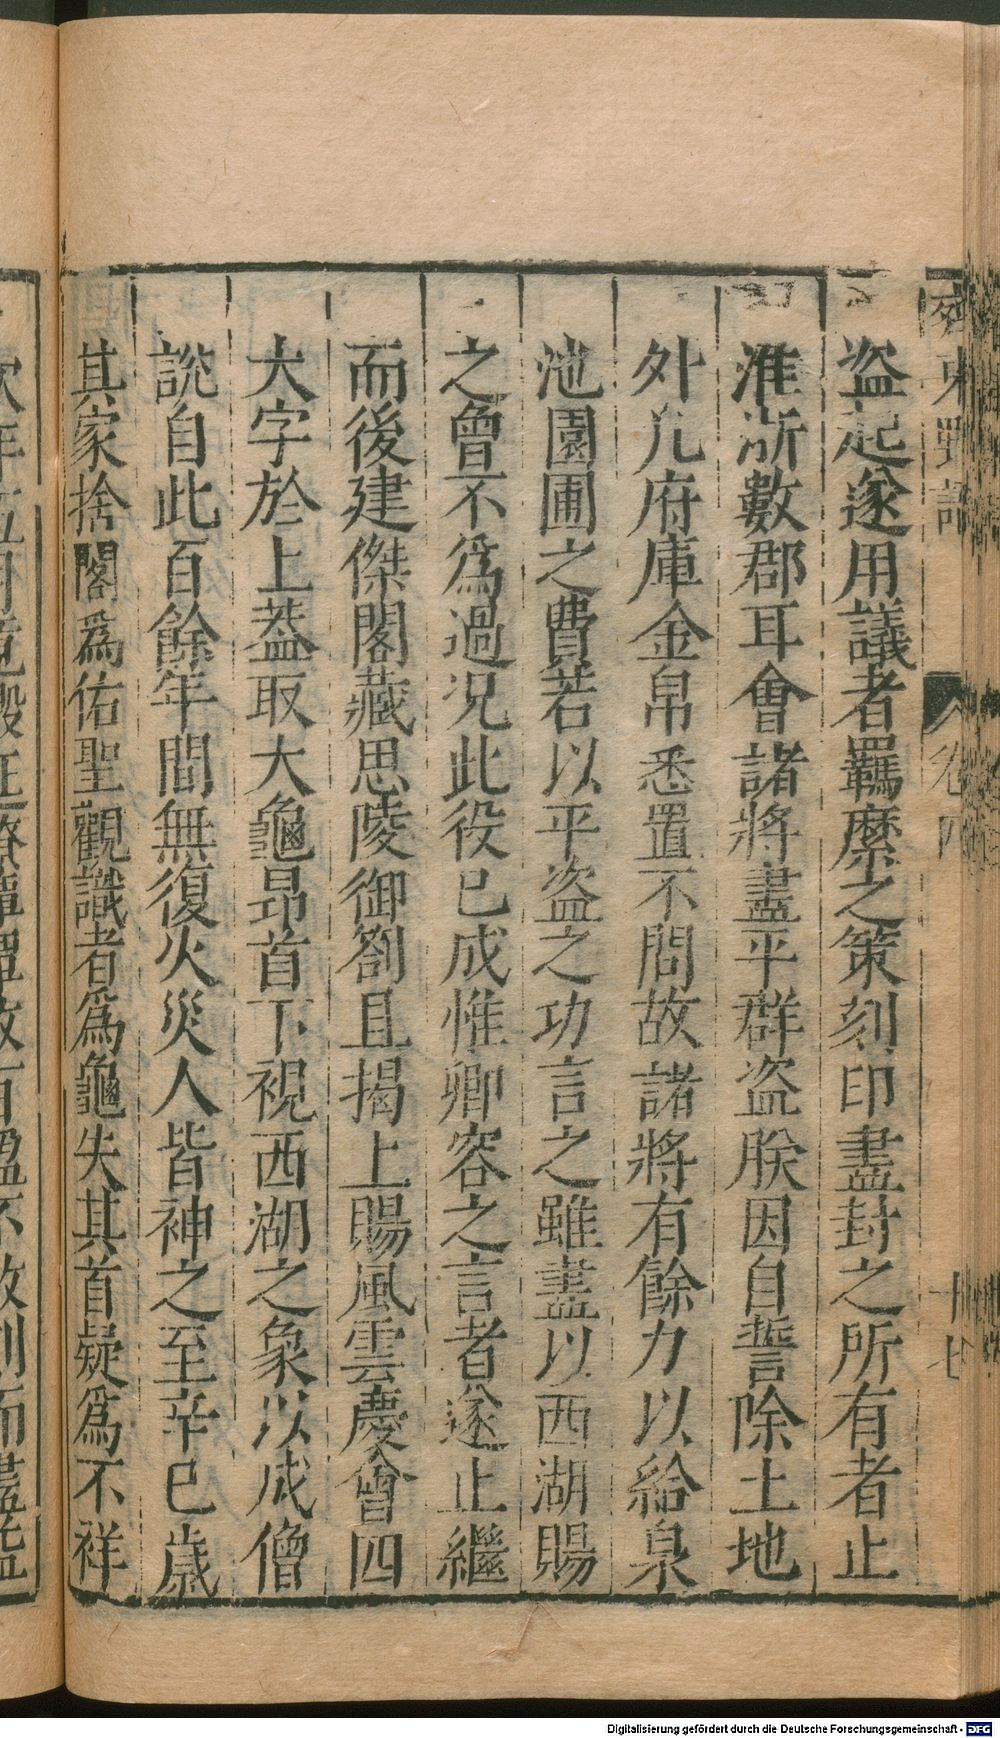 齊東野語 卷四 十七
盗起遂用議者羈縻之策刻印盡封之所有者止
淮浙數郡耳會諸將盡平群盗朕因自誓除土地
外凢府庫金帛悉置不問故諸將有餘力以給泉
池園圃之費若以平盗之功言之雖盡以西湖賜
之曾不為過況此役已成惟卿容之言者遂止繼
而後建傑閣藏思陵御劄且揭上賜風雲慶會四
大字於上葢取大龜昂首下視西湖之象以成僧
說自此百餘年間無復火災人皆神之至辛巳歲
其家捨閣爲佑聖觀識者爲龜失其首疑爲不祥
Digitalisierung gefördert durch die Deutsche Forschungsgemeinschaft - DFG